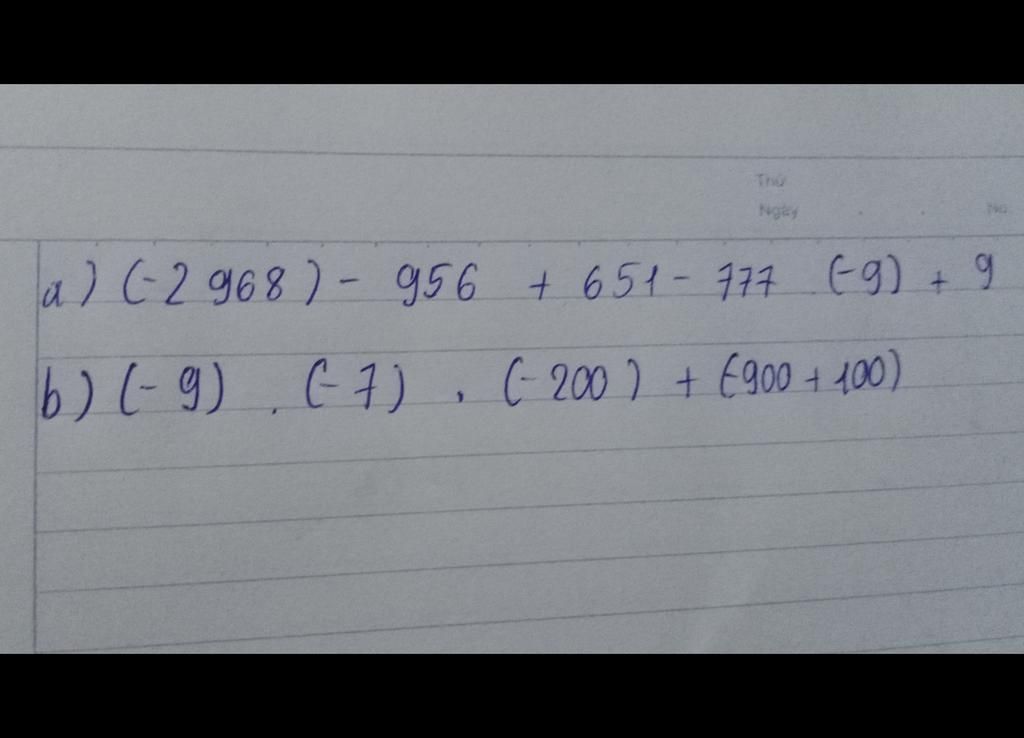 Thứ
Ngày . . No.
a) (-2 968) - 956 + 651 - 777 (-9) + 9
b) (-9) . (-7) . (-200) + (-900 + 100)